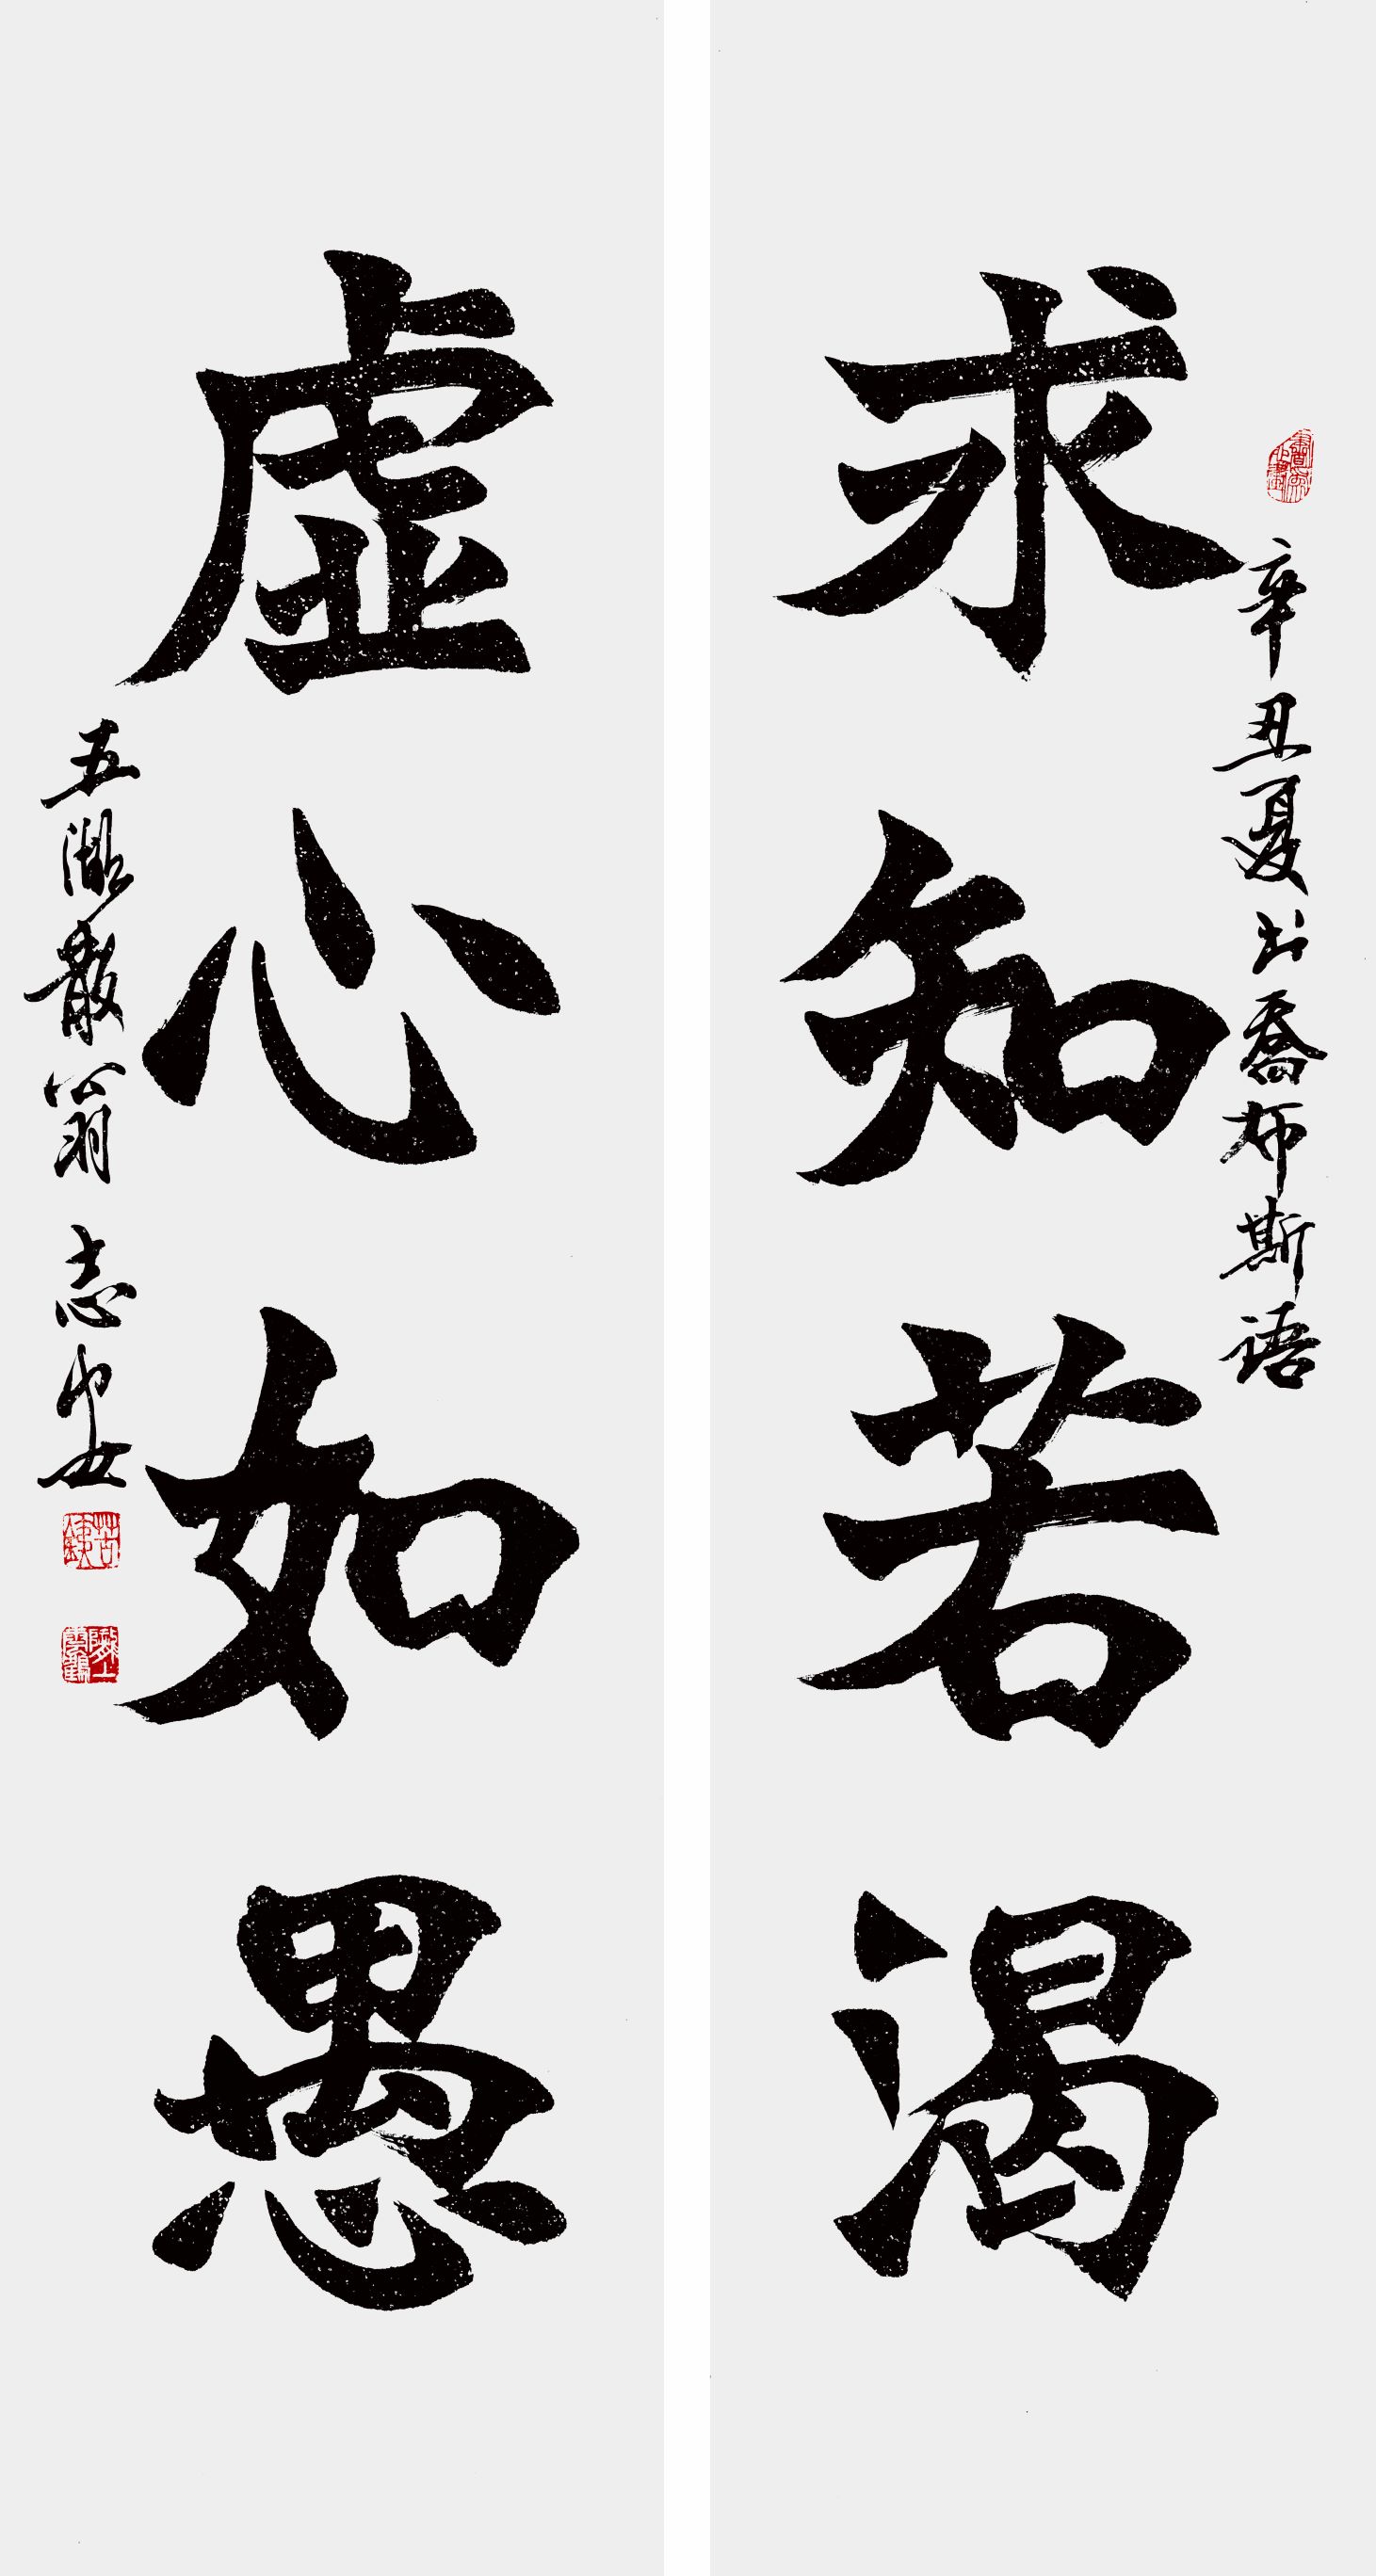 求知若渴
辛丑夏书乔布斯语
虚心如愚
五湖散翁 志安